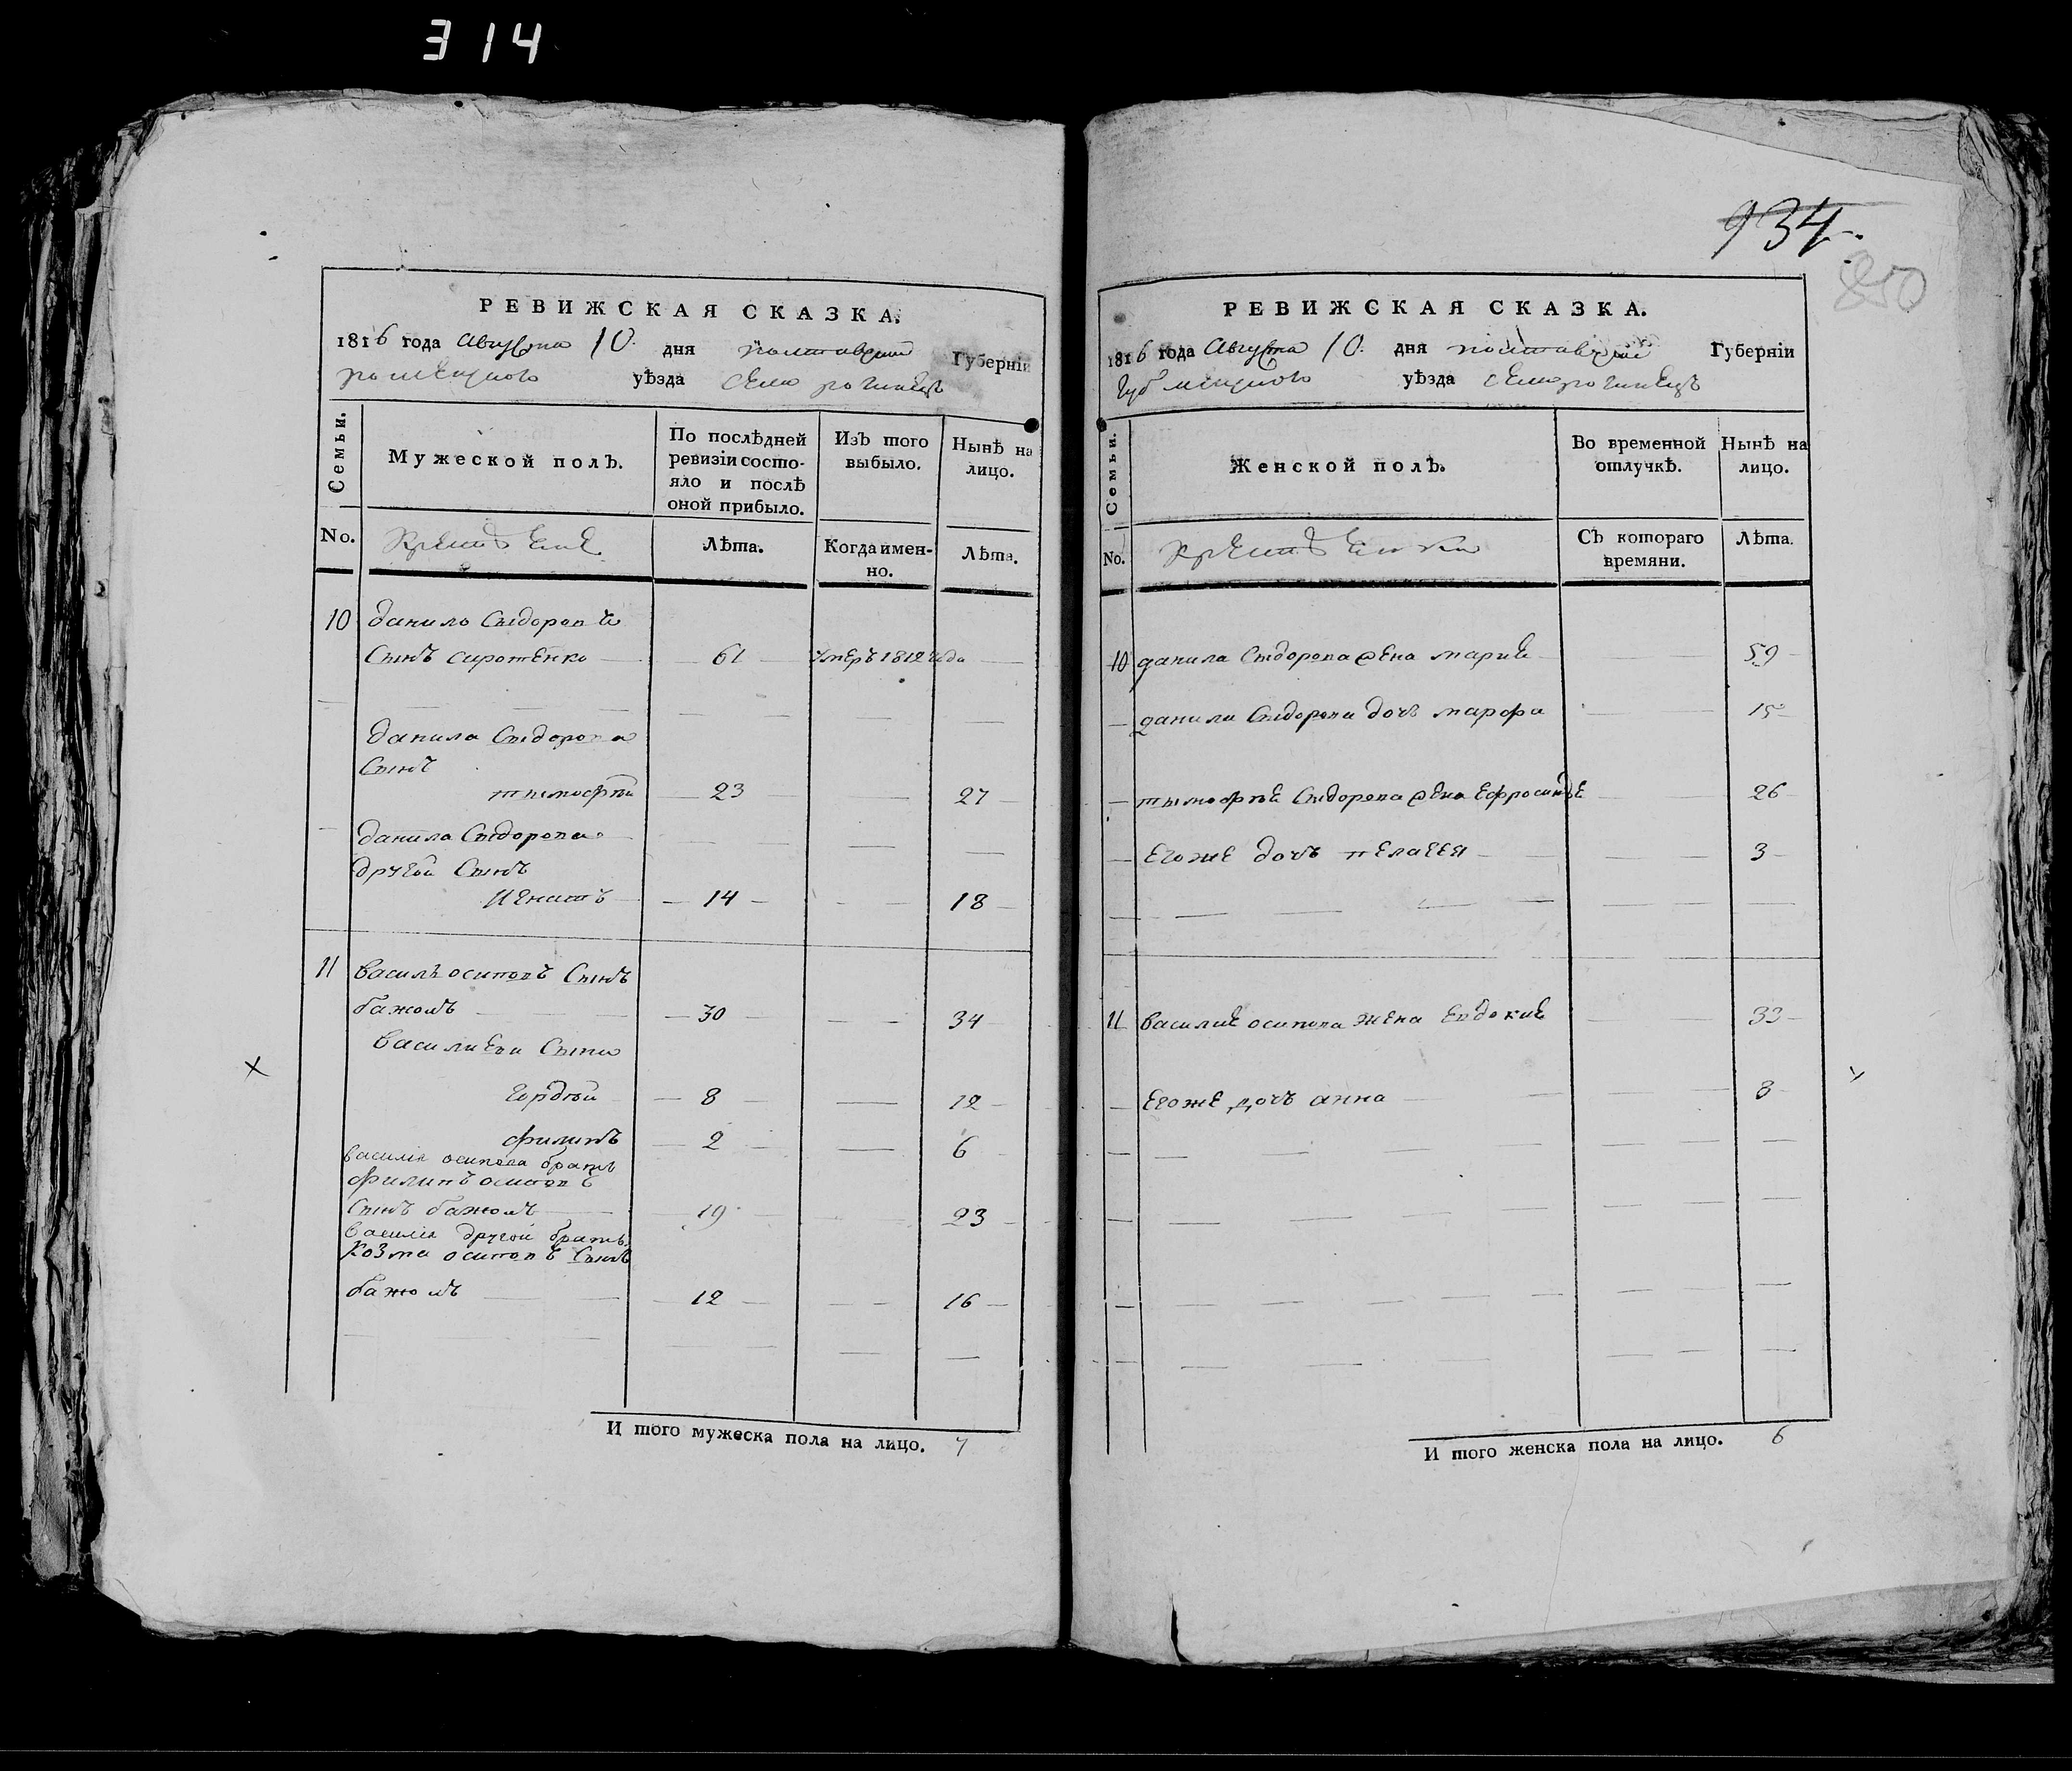 314
934
850
РЕВИЖСКАЯ СКАЗКА.
1816 года Августа 10. дня полтавской Губерніи
роменского уѣзда село рогинецъ
Семьи.
Мужеской полъ.
По послѣдней ревизіи состояло и послѣ оной прибыло.
Изъ того выбыло.
Нынѣ на лицо.
No.
Лѣта.
Когда именно.
Лѣта.
10 данило Сыдоровъ
Сынъ сиротенко 61 умеръ 1812 года
данила Сыдорова
Сынъ
тымофѣй 23 27
данила Сыдорова
другой Сынъ
Игнатъ 14 18
11 василь осиповъ Сынъ
бажолъ 30 34
василиеви Сыни
гордѣй 8 12
филипъ 2 6
василія осипова братъ
филипъ осиповъ
Сынъ бажолъ 19 23
василія другой братъ
Козма осиповъ Сынъ
бажолъ 12 16
И того мужеска пола на лицо. 7
РЕВИЖСКАЯ СКАЗКА.
1816 года Августа 10. дня полтавской Губерніи
уѣзда село рогинецъ
Семьи.
Женской полъ.
Во временной отлучкѣ.
Нынѣ на лицо.
No.
Съ котораго времяни.
Лѣта.
10 данила Сыдорова жена мария 59
данила Сыдорова дочъ марфа 15
тымофѣя Сыдорова жена Ефросинѣя 26
Егоже дочъ пелагея 3
11 василия осипова жена Евдокия 33
Егоже дочъ анна 8
И того женска пола на лицо. 6